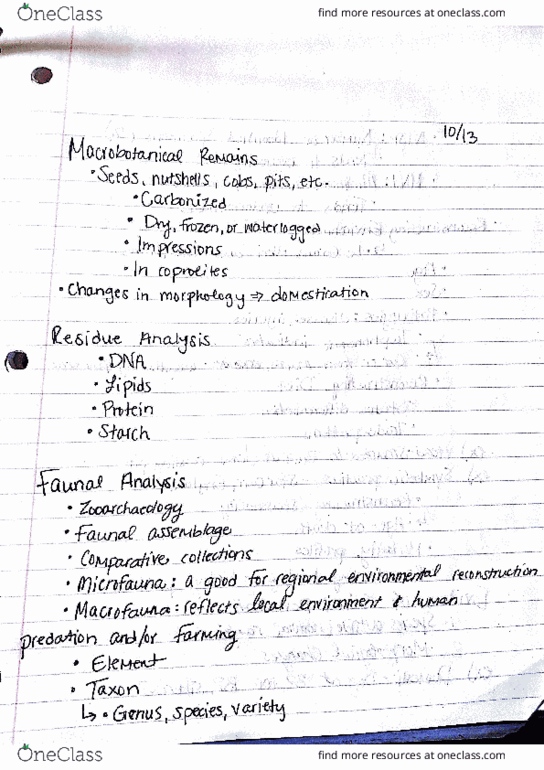 OneClass
find more resources at oneclass.com
10/13
Macrobotanical Remains
• Seeds, nutshells, cobs, pits, etc.
• Carbonized
• Dry, frozen, or waterlogged
• Impressions
• In coprolites
• Changes in morphology ⇒ domestication
Residue Analysis
• DNA
• Lipids
• Protein
• Starch
Faunal Analysis
• Zooarchaeology
• Faunal assemblage
• Comparative collections
• Microfauna: a good for regional environmental reconstruction
• Macrofauna: reflects local environment & human
predation and/or farming
• Element
• Taxon
↳ • Genus, species, variety
OneClass
find more resources at oneclass.com